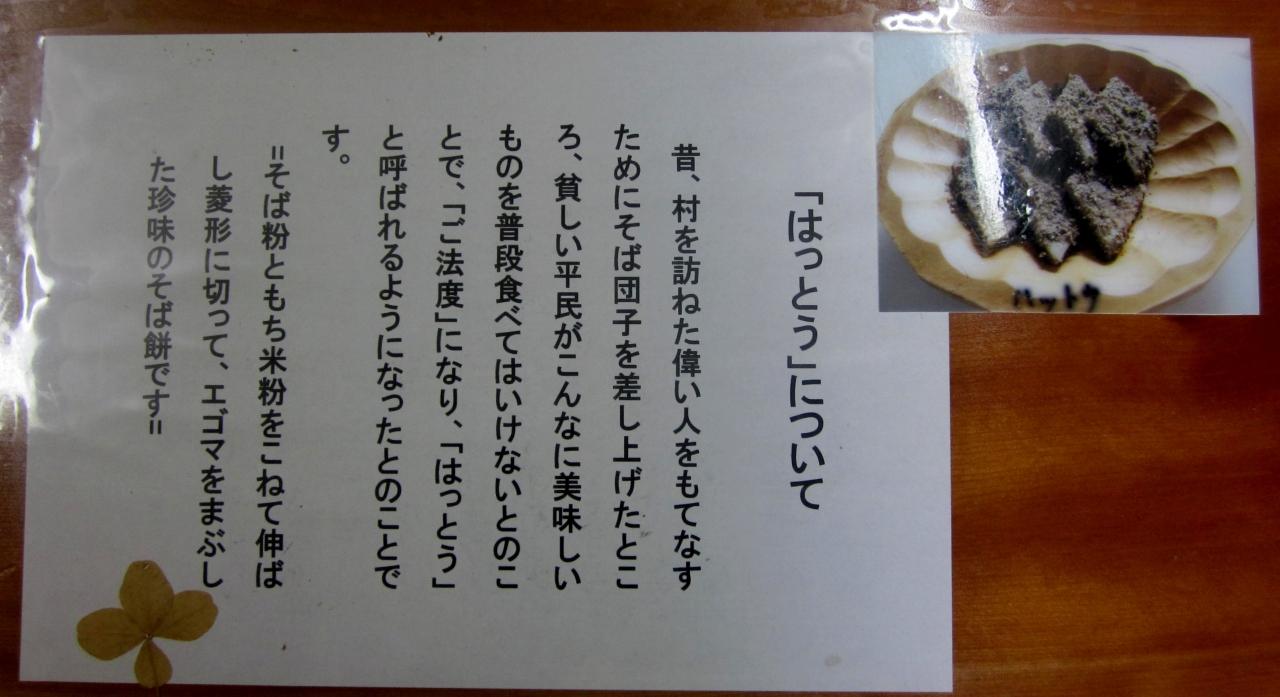 「はっとう」について
昔、村を訪ねた偉い人をもてなす
ためにそば団子を差し上げたとこ
ろ、貧しい平民がこんなに美味しい
ものを普段食べてはいけないとのこ
とで、「ご法度」になり、「はっとう」
と呼ばれるようになったとのことで
す。
=そば粉ともち米粉をこねて伸ば
し菱形に切って、エゴマをまぶし
た珍味のそば餅です=
ハットウ